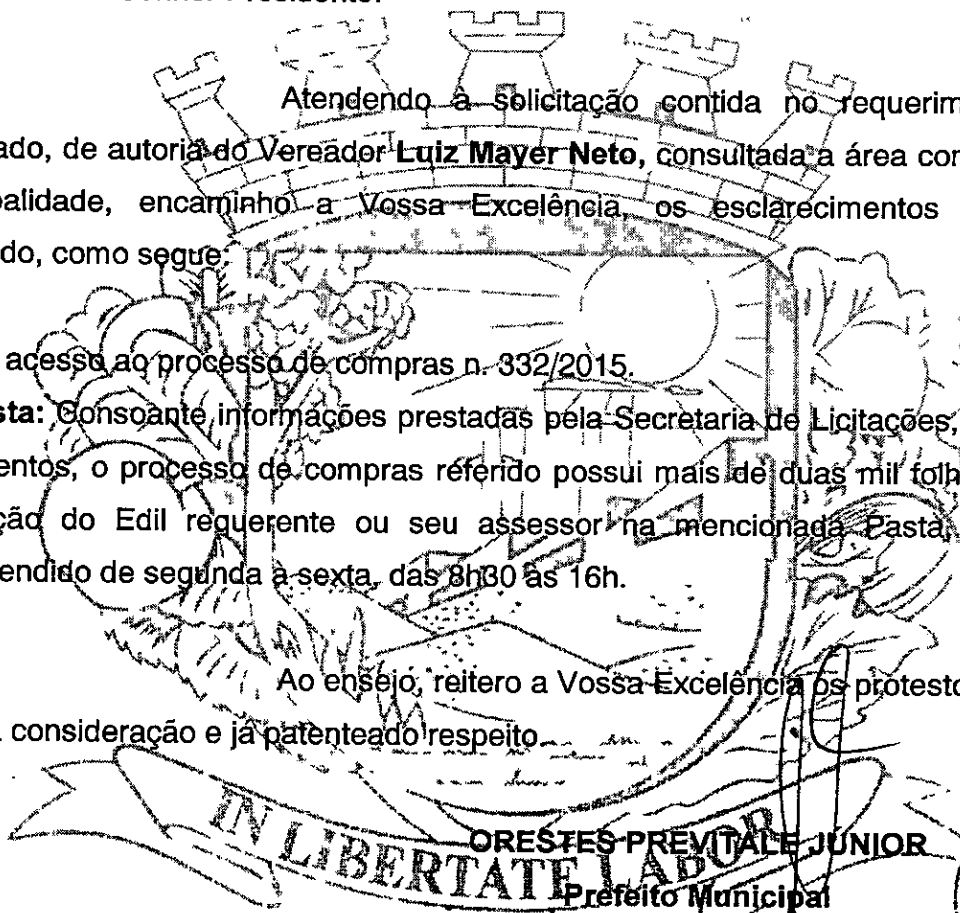 Atendendo à solicitação contida no requerim
ado, de autoria do Vereador Luiz Mayer Neto, consultada a área com
palidade, encaminho a Vossa Excelência, os esclarecimentos
do, como segue:
acesso ao processo de compras n. 332/2015.
sta: Consoante informações prestadas pela Secretaria de Licitações,
entos, o processo de compras referido possui mais de duas mil folh
ção do Edil requerente ou seu assessor na mencionada Pasta,
endido de segunda à sexta, das 8h30 às 16h.
Ao ensejo, reitero a Vossa Excelência os protesto
consideração e já patenteado respeito.
IN LIBERTATE LABOR
ORESTES PREVITALE JUNIOR
Prefeito Municipal